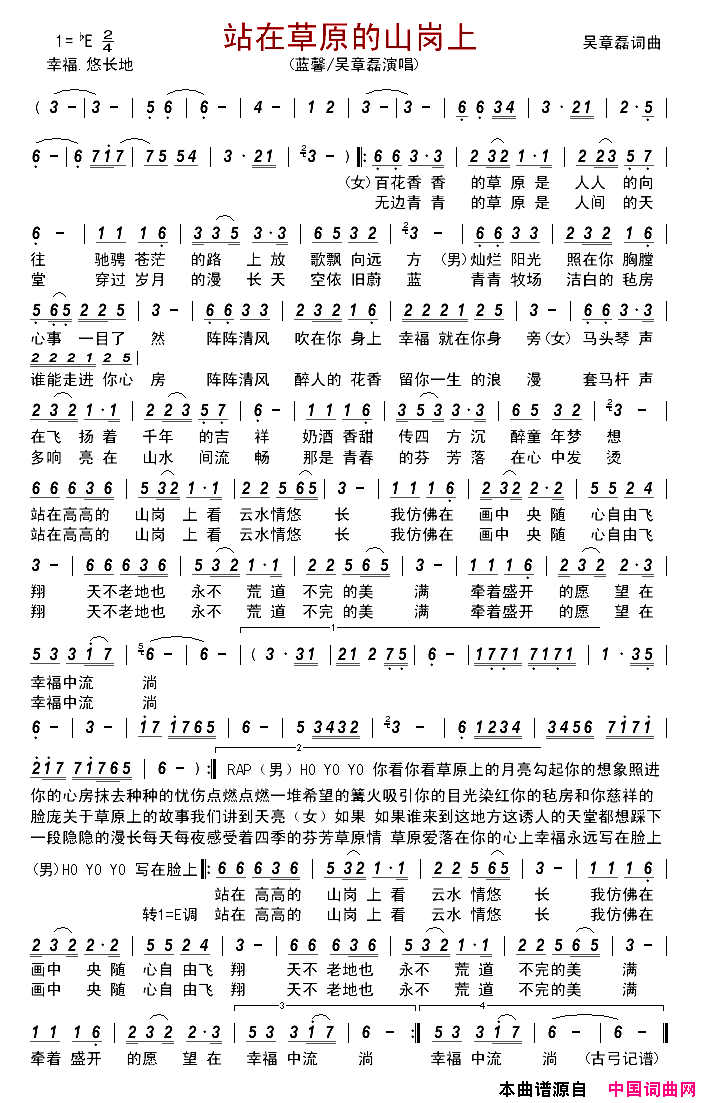 1=♭E 2/4 站在草原的山岗上 吴章磊词曲
幸福.悠长地 (蓝馨/吴章磊演唱)
( 3 - | 3 - | 5 6 | 6 - | 4 - | 1 2 | 3 - | 3 - | 6 6 3 4 | 3 · 21 | 2 · 5 |
6 - | 6 717 | 75 54 | 3 · 21 | 3 - ) ‖: 6 6 3·3 | 2 32 1·1 | 2 23 5 7 |
(女)百花香 香 的草 原是 人人 的向
无边青 青 的草 原是 人间 的天
6 - | 1 1 1 6 | 3 35 3·3 | 6 5 3 2 | 3 - | 6 6 3 3 | 2 3 2 1 6 |
往 驰骋 苍茫 的路 上放 歌飘 向远 方 (男)灿烂 阳光 照在你 胸膛
堂 穿过 岁月 的漫 长天 空依 旧蔚 蓝 青青 牧场 洁白的 毡房
5 65 2 2 5 | 3 - | 6 6 3 3 | 2 2 1 6 1 | 2 2 2 1 2 5 | 3 - | 6 6 3·3 |
心事 一目了 然 阵阵清风 吹在你 身上 幸福 就在你身 旁(女) 马头琴 声
2 2 2 1 2 5 |
谁能走进 你心 房 阵阵清风 醉人的 花香 留你一生 的浪 漫 套马杆 声
2 32 1·1 | 2 23 5 7 | 6 - | 1 1 1 6 | 3 53 3·3 | 6 5 5 2 | 3 - |
在飞 扬着 千年 的吉 祥 奶酒 香甜 传四 方沉 醉童 年梦 想
多响 亮在 山水 间流 畅 那是 青春 的芬 芳落 在心 中发 烫
6 6 6 3 6 | 5 32 1·1 | 2 2 5 65 | 3 - | 1 1 1 6 | 2 32 2·2 | 5 5 2 4 |
站在高高的 山岗 上看 云水情悠 长 我仿佛在 画中 央随 心自由飞
站在高高的 山岗 上看 云水情悠 长 我仿佛在 画中 央随 心自由飞
3 - | 6 6 6 3 6 | 5 32 1·1 | 2 2 5 65 | 3 - | 1 1 1 6 | 2 32 2·3 |
翔 天不老地也 永不 荒道 不完的美 满 牵着盛开 的愿 望在
翔 天不老地也 永不 荒道 不完的美 满 牵着盛开 的愿 望在
1
5 3 3 1 7 | 6 - | 6 - | ( 3 · 31 | 21 2 75 | 6 - | 1771 7171 | 1 · 35 |
幸福中流 淌
幸福中流 淌
6 - | 3 - | 17 1765 | 6 - | 5 3432 | 3 - | 6 1234 | 3456 7171 |
2
217 71765 | 6 - ) :‖ RAP (男) HO YO YO 你看你看草原上的月亮勾起你的想象照进
你的心房抹去种种的忧伤点燃点燃一堆希望的篝火吸引你的目光染红你的毡房和你慈祥的
脸庞关于草原上的故事我们讲到天亮(女)如果 如果谁来到这地方这诱人的天堂都想踩下
一段隐隐的漫长每天每夜感受着四季的芬芳草原情 草原爱落在你的心上幸福永远写在脸上
(男)HO YO YO 写在脸上 ‖: 6 6 6 3 6 | 5 32 1·1 | 2 2 5 65 | 3 - | 1 1 1 6 |
站在 高高的 山岗 上看 云水 情悠 长 我仿佛在
转1=E调 站在 高高的 山岗 上看 云水 情悠 长 我仿佛在
2 32 2·2 | 5 5 2 4 | 3 - | 6 6 6 3 6 | 5 32 1·1 | 2 2 5 65 | 3 - |
画中 央随 心自 由飞 翔 天不 老地也 永不 荒道 不完的美 满
画中 央随 心自 由飞 翔 天不 老地也 永不 荒道 不完的美 满
3 4
1 1 1 6 | 2 32 2·3 | 5 3 3 1 7 | 6 - :‖ 5 3 3 1 7 | 6 - | 6 - ‖
牵着 盛开 的愿 望在 幸福 中流 淌 幸福 中流 淌 (古弓记谱)
本曲谱源自 中国词曲网